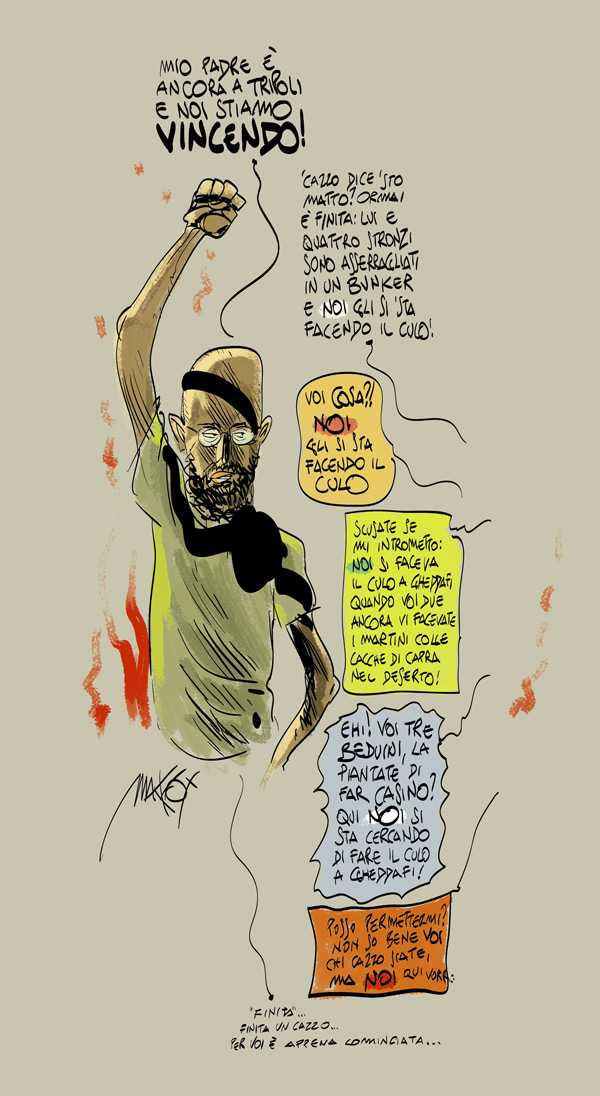 MIO PADRE È
ANCORA A TRIPOLI
E NOI STIAMO
VINCENDO!
'CAZZO DICE 'STO
MATTO? ORMAI
È FINITA: LUI E
QUATTRO STRONZI
SONO ASSERRAGLIATI
IN UN BUNKER
E NOI GLI SI 'STA
FACENDO IL CULO!
VOI COSA?!
NOI
GLI SI STA
FACENDO IL
CULO
SCUSATE SE
MI INTROMETTO:
NOI SI FACEVA
IL CULO A GHEDDAFI
QUANDO VOI DUE
ANCORA VI FACEVATE
I MARTINI COLLE
CACCHE DI CAPRA
NEL DESERTO!
EHI! VOI TRE
BEDUINI, LA
PIANTATE DI
FAR CASINO?
QUI NOI SI
STA CERCANDO
DI FARE IL CULO
A GHEDDAFI!
POSSO PERMETTERMI?
NON SO BENE VOI
CHI CAZZO SIATE,
MA NOI QUI VORR..
MAKKOX
"FINITA"...
FINITA UN CAZZO...
PER VOI È APPENA COMINCIATA...